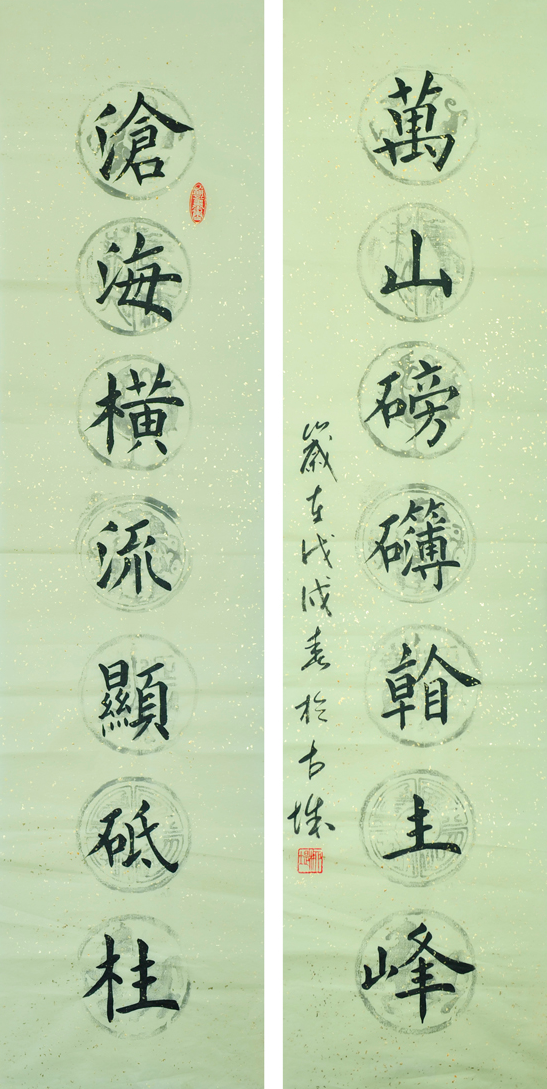 滄海橫流顯砥桂
萬山磅礴主峰
歲在戊戌春於古城